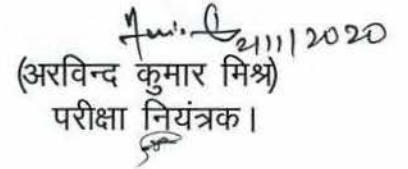 21/1/2020
(अरविन्द कुमार मिश्र)
परीक्षा नियंत्रक।